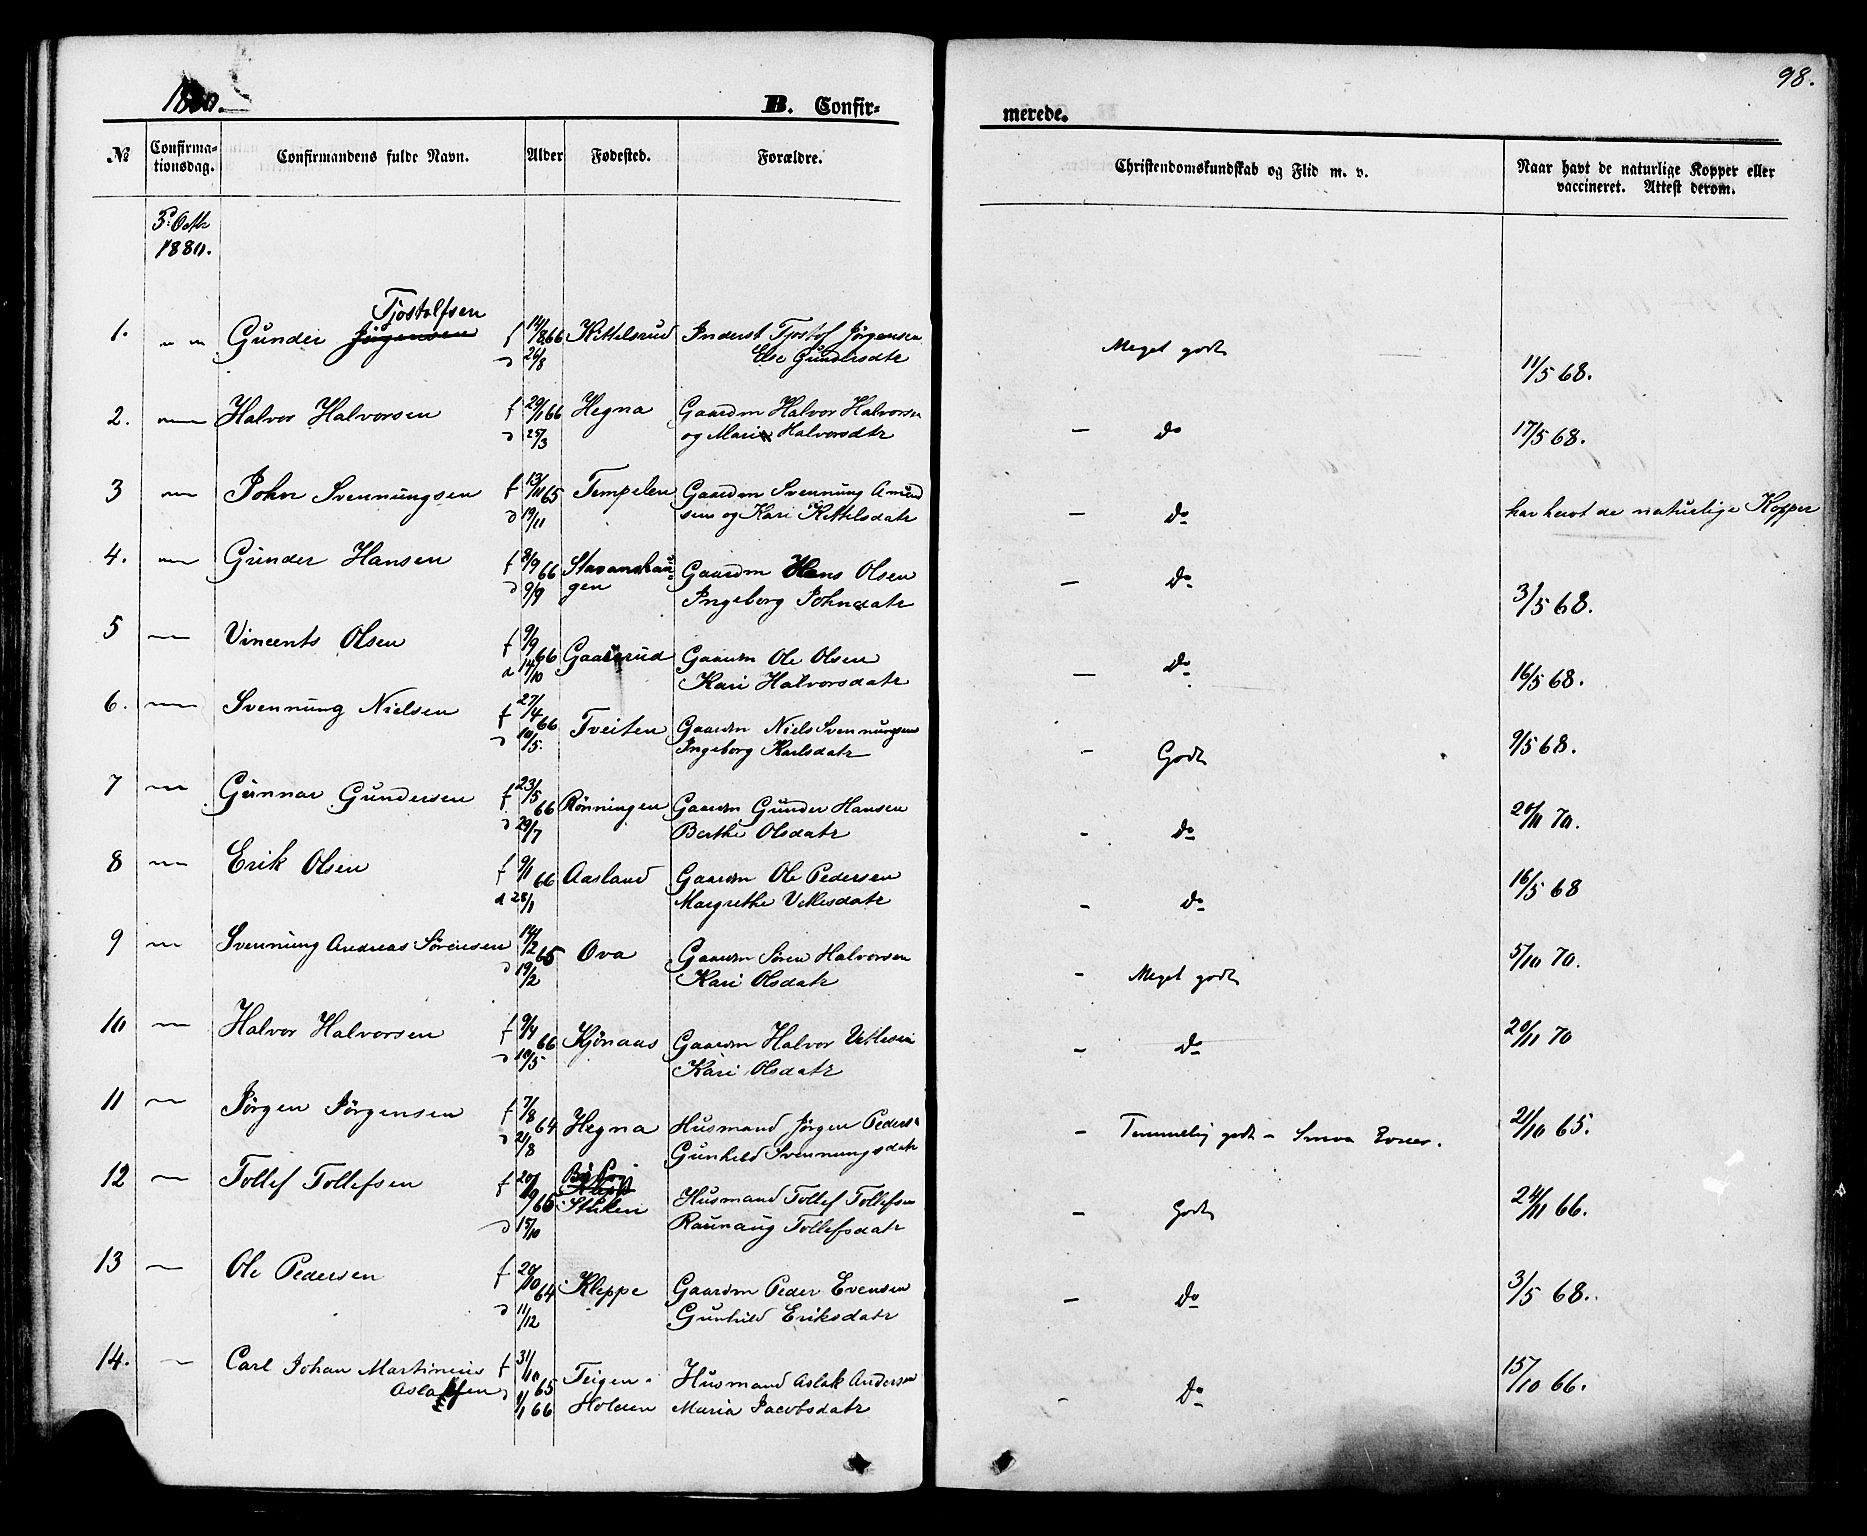 1880.
B. Confir-
merede.
98.
№
Confirma-
tionsdag.
Confirmandens fulde Navn.
Alder
Fødested.
Forældre.
Christendomskundskab og Flid m. v.
Naar havt de naturlige Kopper eller
vaccineret. Attest derom.
1880.
Tjostolfsen
1. Gunder Jørgensen f 14/8 66 Kittelsrud Inderst Tjostof Jørgensen Meget godt 11/5 68.
d 26/8 Else Gundersdtr
2. Halvor Halvorsen f 29/1 66 Hegna Gaardm Halvor Halvorsen - do 17/5 68.
d 25/3 og Mari Halvorsdtr
3 John Svennungsen f 13/11 65 Tempelen Gaardm Svennung Amund - do har havt de naturlige Kopper
d 19/11 sen og Kari Kittelsdatr
4. Gunder Hansen f 3/9 66 Stavanshau= Gaardm Hans Olsen - do 3/5 68.
d 9/9 gen Ingeborg Johnsdatr
5 Vincents Olsen f 9/9 66 Gaasrud Gaardm Ole Olsen - do 16/5 68.
d 14/10 Kari Halvorsdatr
6. Svennung Nielsen f 27/4 66 Tveiten Gaardm Niels Svennungsen - Godt 9/5 68.
d 10/5. Ingeborg Karlsdatr
7 Gunnar Gundersen f 23/5 66 Rønningen Gaardm Gunder Hansen - do 20/11 70.
d 29/7 Berthe Olsdatr
8 Erik Olsen f 9/1 66 Aasland Gaardm Ole Pedersen - do 16/5 68
d 28/1 Margrethe Vetlesdatr
9 Svennung Andreas Sørensen 14/2 65 Ova Gaardm Søren Halvorsen - Meget godt 5/10 70.
d 19/2 Kari Olsdatr
10 Halvor Halvorsen f 9/4 66 Kjønaas Gaardm Halvor Vetlesen - do 20/11 70
d 10/5 Kari Olsdatr
11 Jørgen Jørgensen f 7/8 64 Hegna Husmand Jørgen Peders. - Temmelig godt - Smaa Evner. 21/10 65.
d 21/8 Gunhild Svennungsdatr
12 Tollef Tollefsen f 20/9 65 Husmand Tollef Tollefsen - Godt 24/11 66.
d 15/10 Raunaug Tollefsdatr
13 Ole Pedersen f 20/10 64 Kleppe Gaardm Peder Evensen - do 3/5 68.
d 11/12 Gunhild Eriksdatr
14. Carl Johan Martinius f 31/10 65 Teigen Husmand Aslak Andersen - do 15/10 66.
Aslaksen d 1/1 66 Holden Maria Jacobsdatr